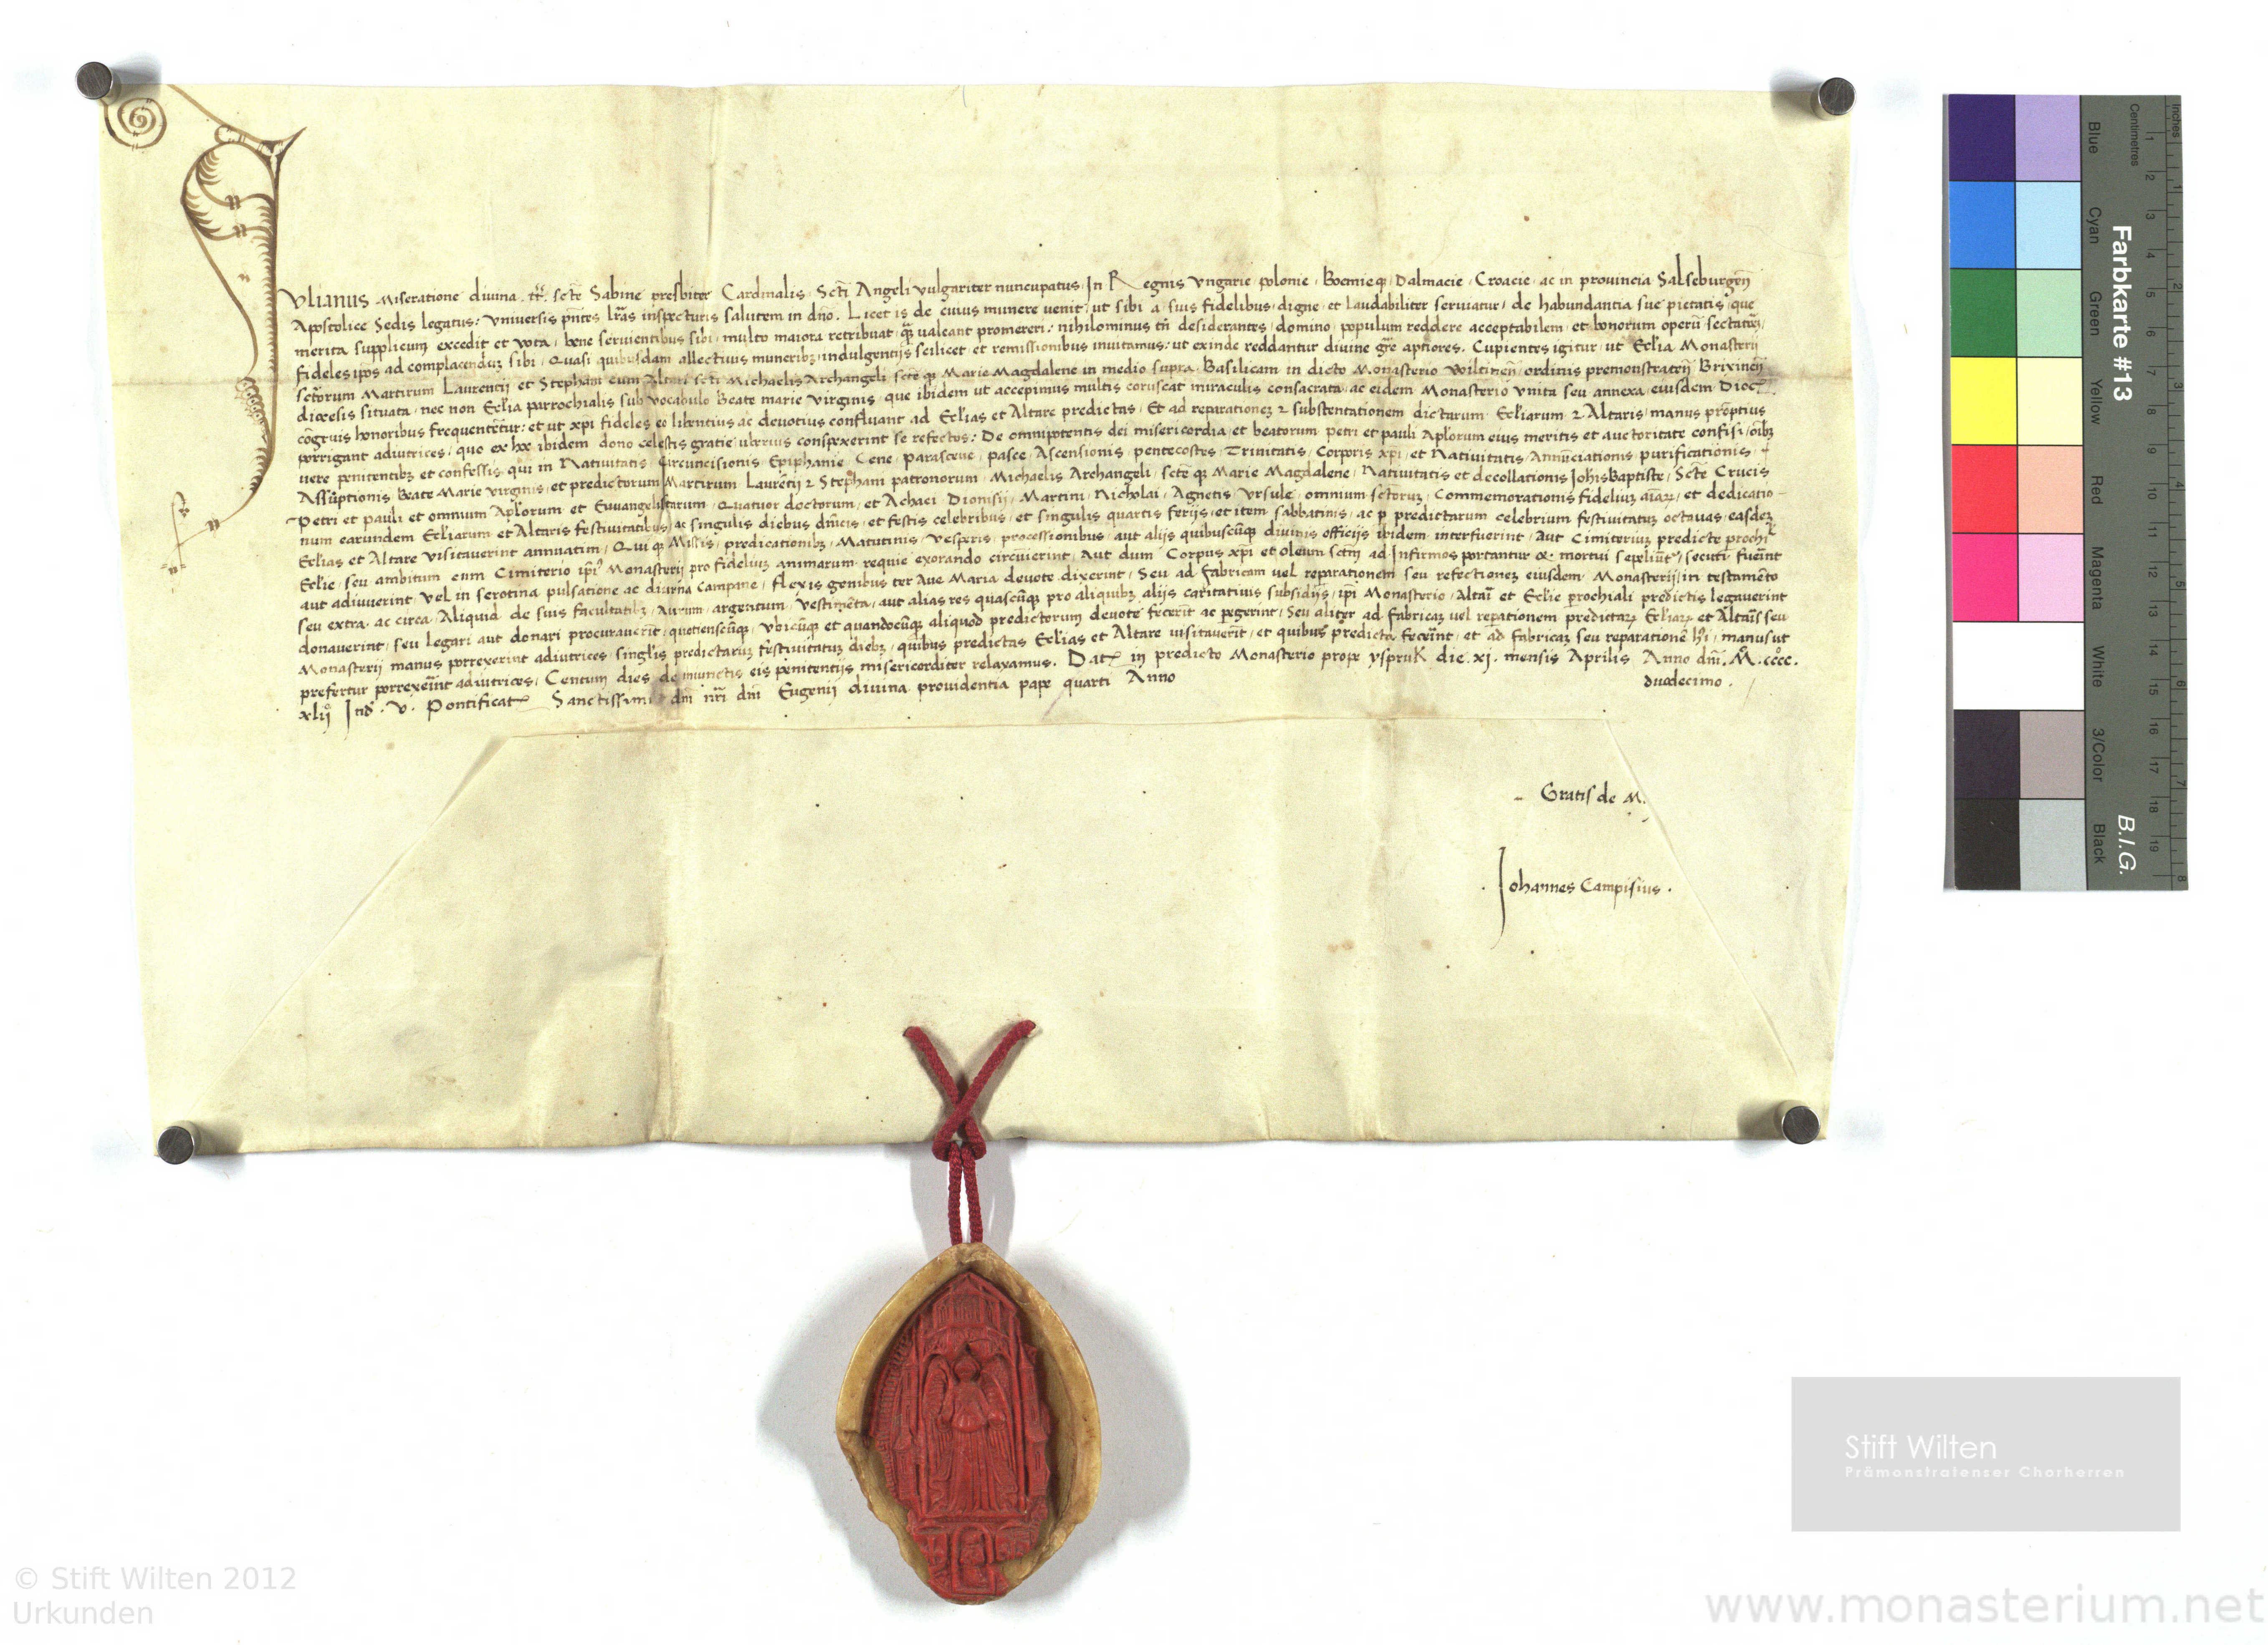 Iulianus miseratione divina . tt̄. sct̄e Sabine presbiter Cardinalis Sct̄i Angeli vulgariter nuncupatus, In Regnis Ungarie polonie, Boemieqʒ, Dalmacie, Croacie, ac in provincia Salseburgeñ
Apostolice Sedis legatus: Universis pñtes lr̄as inspecturis salutem in dño. Licet is de cuius munere venit, ut sibi a suis fidelibus digne, et laudabiliter serviatur, de habundantia sue pietatis, que
merita supplicum excedit et vota, bene servientibus sibi, multo maiora retribuat qʒ valeant promereri: nihilominus tñ desiderantes, domino, populum reddere acceptabilem, et bonorum operū sectatorē,
fideles ip̄os ad complacenduʒ sibi, Quasi quibusdam allectivis muneribʒ, indulgentijs scilicet, et remissionibus invitamus: ut exinde reddantur divine gr̄e aptiores. Cupientes igitur, ut Eccl̄ia Monasterij
sct̄orum Martirum Laurentij et Stephani cum Altari sct̄i Michaelis Archangeli, sct̄e qʒ Marie Magdalene in medio supra Basilicam in dicto Monasterio Wiltineñ, ordinis premonstrateñ Brixineñ
diocesis situata, nec non Eccl̄ia parrochialis sub vocabulo Beate marie virginis, que ibidem ut accepimus multis coruscat miraculis consacrata, ac eidem Monasterio Unita seu annexa, eiusdem Dioc̄.
cōgruis honoribus frequentetur: et ut xp̄i fideles eo libentius ac devotius confluant ad Eccl̄ias et Altare predictas, Et ad reparationeʒ ⁊ substentationem dictarum Eccl̄iarum ⁊ Altaris, manus prōptius
porrigant adiutrices, quo ex hoc ibidem dono celestis gratie uberius conspexerint se refectos: De omnipotentis dei misericordia, et beatorum petri et pauli Apl̄orum eius meritis et auctoritate confisi, oībʒ
vere penitentibʒ et confessis, qui in Nativitatis Circuncisionis Epiphanie, Cene, parasceve, pasce Ascensionis, pentecostes, Trinitatis, Corporis xp̄i, et Nativitatis, Annūciationis purificationis,
Assūptionis Beate Marie virginis, et predictorum Martirum Laurētij ⁊ Stephani patronorum, Michaelis Archangeli, sct̄e qʒ Marie Magdalene, Nativitatis et decollationis Joh̄is baptiste, Sct̄e Crucis
Petri et pauli et omnium Apl̄orum et Euvangelistarum, Quatuor doctorum, et Achaci Dionisij, Martini, Nicholai, Agnetis, Ursule, omnium sct̄oruʒ, Commemorationis fideliuʒ aīaʒ, et dedicatio-
num earundem Eccl̄iarum et Altaris festivitatibus, ac singulis diebus dn̄icis, et festis celebribus, et singulis quartis ferijs, et item sabbatinis, ac p predictarum celebrium festivitatuʒ octavas, easdeʒ
Eccl̄ias et Altare visitaverint annuatim, Qui qʒ Missis, predicationibʒ, Matutinis, Vesperis, processionibus, aut alijs quibuscūqʒ divinis officijs ibidem interfuerint, Aut Cimiteriuʒ predicte prochīl
Eccl̄ie, seu ambitum cum Cimiterio ip̄i Monasterij pro fideliuʒ animarum requie exorando circūierint, Aut dum Corpus xp̄i et oleum sctm̄ ad Infirmos portantur et mortui sepeliūt, secuti fuerīnt
aut adiuverint, vel in serotina pulsatione ac diurna campane, flexis genibus ter Ave Maria devote dixerint, Seu ad fabricam vel reparationem seu refectioneʒ eiusdem Monasterij, in testamēto
seu extra, ac circa, Aliquid de suis facultatibʒ, Aurum, argentum, Vestimēta, aut alias res quascūqʒ pro aliquibʒ alijs caritativis subsidijs, ip̄i Monasterio, Altari et Eccl̄ie prochiali predictis legaverint
donaverint, seu legari aut donari procuraverīt, quotienscūqʒ, Ubicūqʒ et quandocūqʒ aliquod predictorum devote fecerīt ac pegerint, Seu aliter ad fabricaʒ vel reparationem predictaʒ Eccl̄iaʒ et Altaris seu
Monasterij manus porrexerint adiutrices, singlis predictaruʒ festivitatuʒ diebʒ, quibus predictas Eccl̄ias et Altare visitaverīt, et quibus predicta fecerīnt, et ad fabricaʒ seu reparationē hōi, manus ut
prefertur porrexerīnt adiutrices, Centum dies de iniunctis eis penitentijs misericorditer relaxamus. Dat̄ in predicto Monasterio prope yspruk die .xi. mensis Aprilis Anno dn̄i. M̊. cccc̊.
xlij̊ Ind̄. v. Pontificat̄ Sanctissimi dn̄i nr̄i dn̄i Eugenij divina providentia pape quarti Anno duodecimo.
Gratis de M.
. Johannes Campisius .
Farbkarte #13
B.I.G.
Inches
Centimetres
Blue Cyan Green Yellow Red Magenta White 3/Color Black
1 2 3 4 5 6 7 8 9 10 11 12 13 14 15 16 17 18 19
1 2 3 4 5 6 7 8
Stift Wilten
Prämonstratenser Chorherren
© Stift Wilten 2012
Urkunden
www.monasterium.net